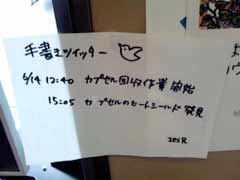 手書きツイッター
6/14 12:40 カプセル回収作業 開始
15:05 カプセルのヒートシールド 発見